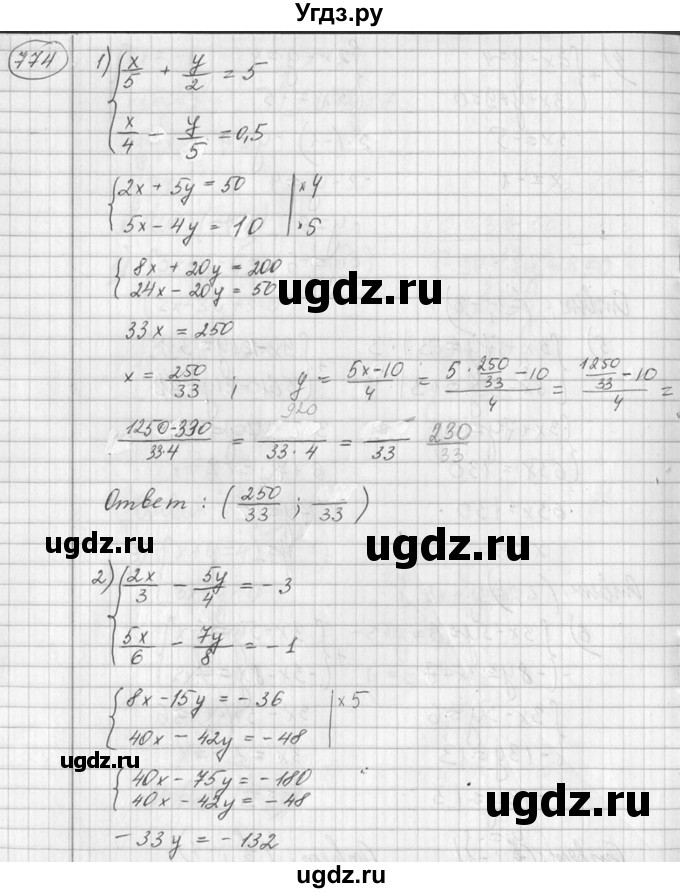 Угдз.ру
774
1) { x/5 + y/2 = 5
x/4 - y/5 = 0,5
{ 2x + 5y = 50 | ×4
5x - 4y = 10 | ×5
{ 8x + 20y = 200
24x - 20y = 50
ugdz.ru
33x = 250
x = 250/33 ; y = (5x-10)/4 = (5 · 250/33 - 10)/4 = (1250/33 - 10)/4 =
(1250-330)/(33·4) = 920/(33·4) = /33 230/33
ugdz.ru
Ответ: (250/33 ; /33)
ugdz.ru
ugdz.ru
2) { 2x/3 - 5y/4 = -3
5x/6 - 7y/8 = -1
{ 8x - 15y = -36 | ×5
40x - 42y = -48
ugdz.ru
{ 40x - 75y = -180
40x - 42y = -48
ugdz.ru
-33y = -132
ugdz.ru